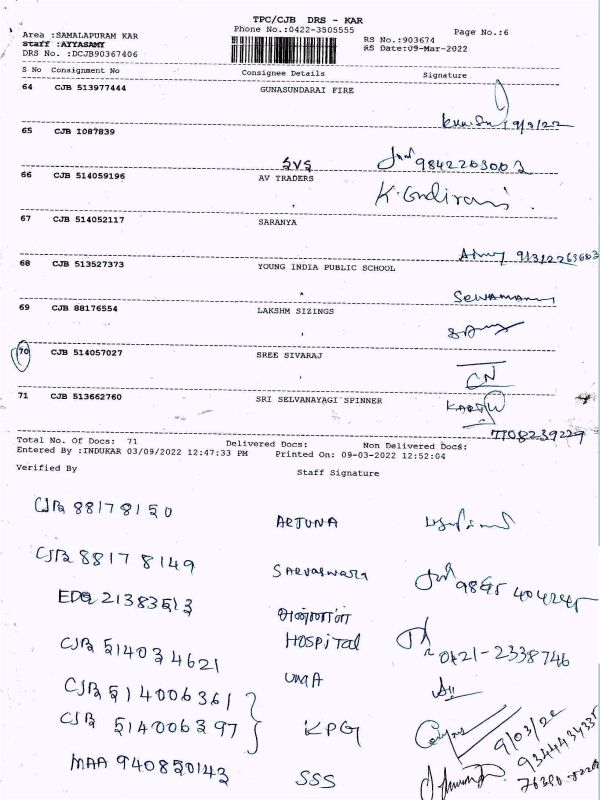 TPC/CJB DRS - KAR
Area :SAMALAPURAM KAR Phone No.:0422-3505555 Page No.:6
staff :AYYASAMY RS No.:903674
DRS No. :DCJB90367406 RS Date:09-Mar-2022
S No Consignment No Consignee Details Signature
64 CJB 513977444 GUNASUNDARAI FIRE
9/3/22
65 CJB I087839
9842263003
66 CJB 514059196 AV TRADERS
67 CJB 514052117 SARANYA
68 CJB 513527373 YOUNG INDIA PUBLIC SCHOOL
69 CJB 88176554 LAKSHM SIZINGS
70 CJB 514057027 SREE SIVARAJ
CN
71 CJB 513662760 SRI SELVANAYAGI SPINNER
7708239227
Total No. Of Docs: 71 Delivered Docs: Non Delivered Docs:
Entered By :INDUKAR 03/09/2022 12:47:33 PM Printed On: 09-03-2022 12:52:04
Verified By Staff Signature
CJB 88178150 ARJUNA
CJB 88178149 Sarvaswara
21383513
HOSPITAL 0421-2338746
CJB 514034621 UMA
CJB 514006361
CJB 514006397 KPG
9/03/22
MAA 940850143 SSS